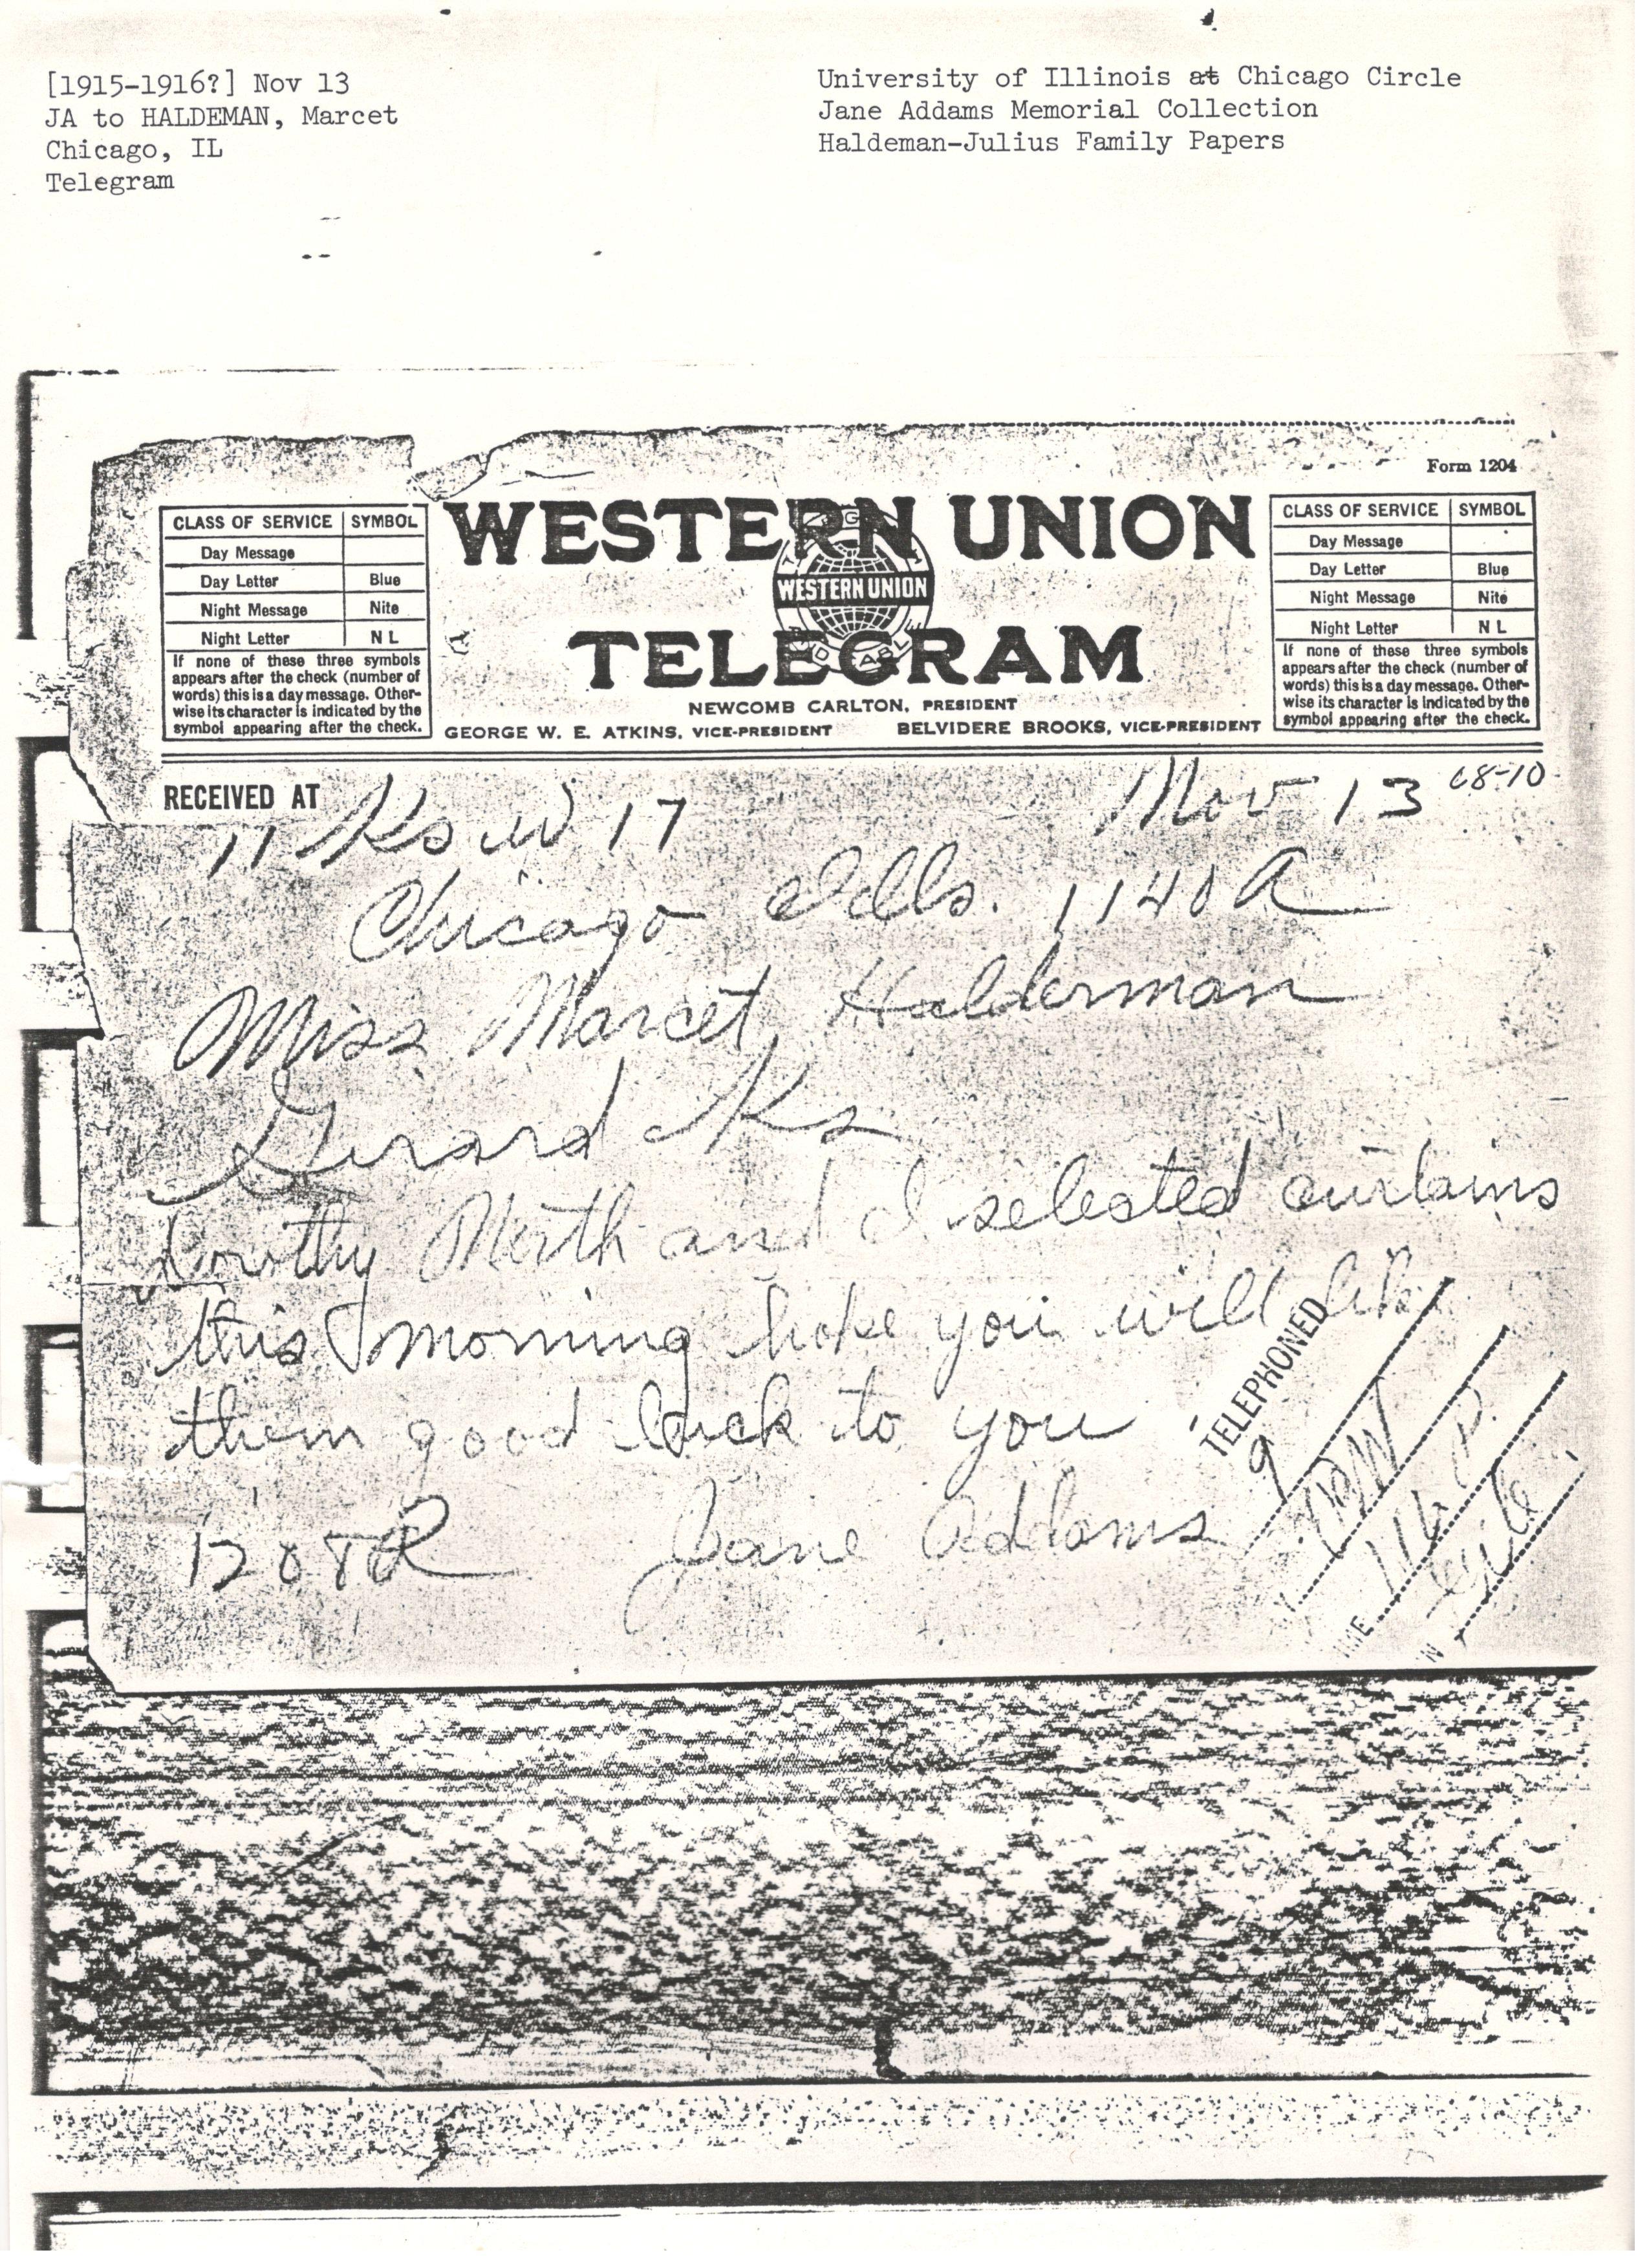 [1915-1916?] Nov 13
JA to HALDEMAN, Marcet
Chicago, IL
Telegram
University of Illinois at Chicago Circle
Jane Addams Memorial Collection
Haldeman-Julius Family Papers
Form 1204
CLASS OF SERVICE SYMBOL
Day Message
Day Letter Blue
Night Message Nite
Night Letter N L
If none of these three symbols
appears after the check (number of
words) this is a day message. Other-
wise its character is indicated by the
symbol appearing after the check.
WESTERN UNION
WESTERN UNION
TELEGRAM
NEWCOMB CARLTON, PRESIDENT
GEORGE W. E. ATKINS, VICE-PRESIDENT BELVIDERE BROOKS, VICE-PRESIDENT
CLASS OF SERVICE SYMBOL
Day Message
Day Letter Blue
Night Message Nite
Night Letter N L
If none of these three symbols
appears after the check (number of
words) this is a day message. Other-
wise its character is indicated by the
symbol appearing after the check.
RECEIVED AT
Nov 13
11 Ks W 17
Chicago Ills. 1140 A
Miss Marcet Halderman
Girard Ks
Dorothy and I selected curtains
this morning hope you will like
them good luck to you
Jane Addams
TELEPHONED